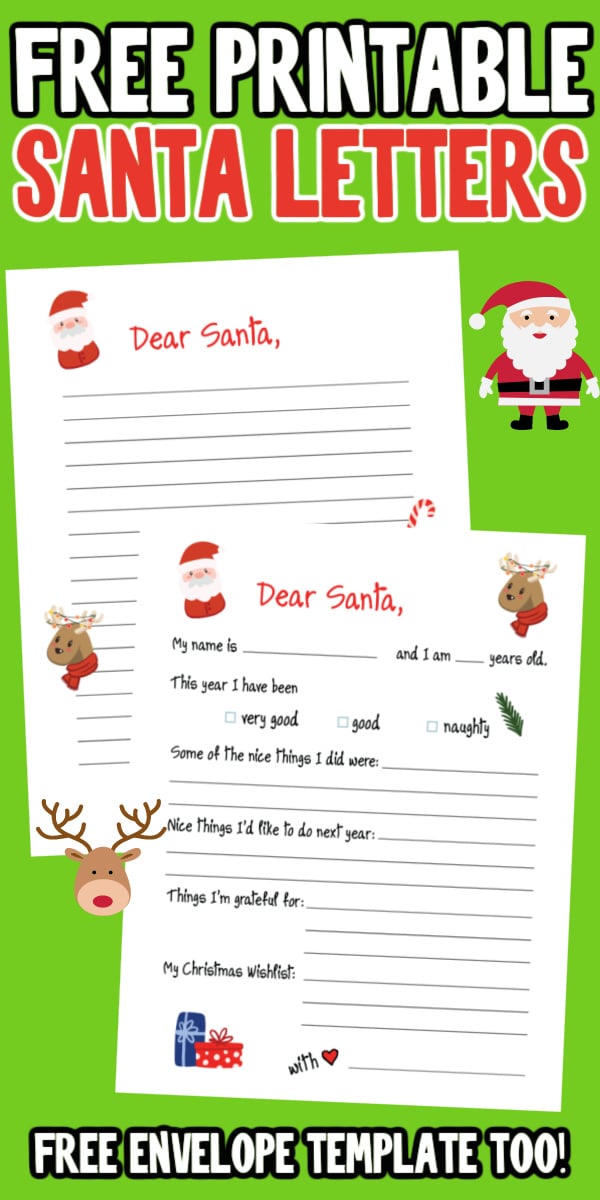 FREE PRINTABLE
SANTA LETTERS
Dear Santa,
Dear Santa,
My name is and I am years old.
This year I have been
very good good naughty
Some of the nice things I did were:
Nice things I'd like to do next year:
Things I'm grateful for:
My Christmas Wishlist:
with
FREE ENVELOPE TEMPLATE TOO!